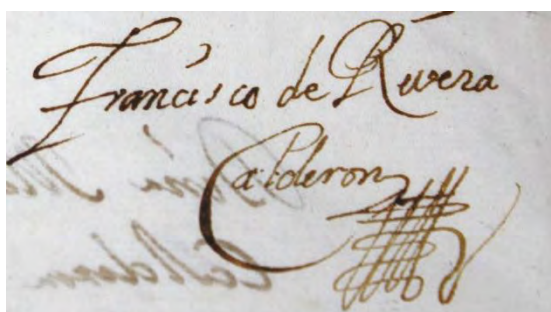 Francisco de Rivera
Calderon